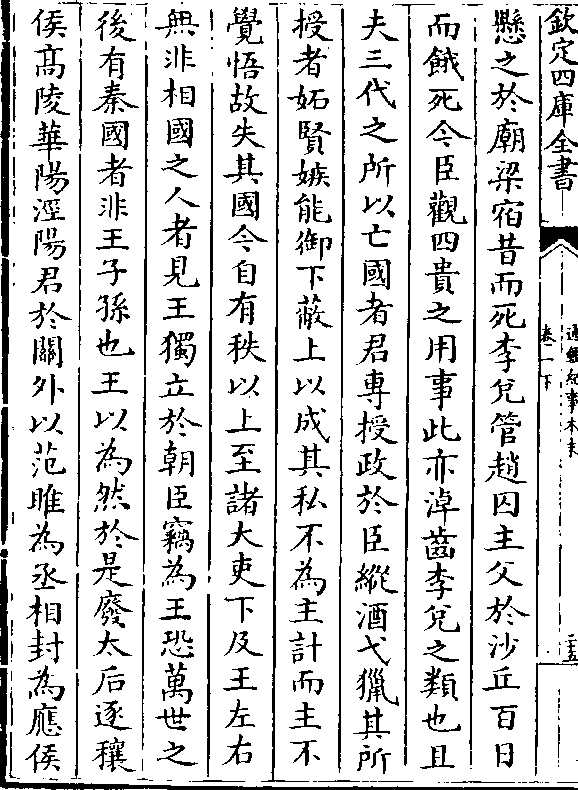 欽定四庫全書
通鑑紀事本末
卷一下
二五
懸之於廟梁宿昔而死李兌管趙囚主父於沙丘百日
而餓死今臣觀四貴之用事此亦淖齒李兌之類也且
夫三代之所以亡國者君專授政於臣縱酒弋獵其所
授者妬賢嫉能御下蔽上以成其私不為主計而主不
覺悟故失其國今自有秩以上至諸大吏下及王左右
無非相國之人者見王獨立於朝臣竊為王恐萬世之
後有秦國者非王子孫也王以為然於是廢太后逐穰
侯髙陵華陽涇陽君於關外以范雎為丞相封為應侯